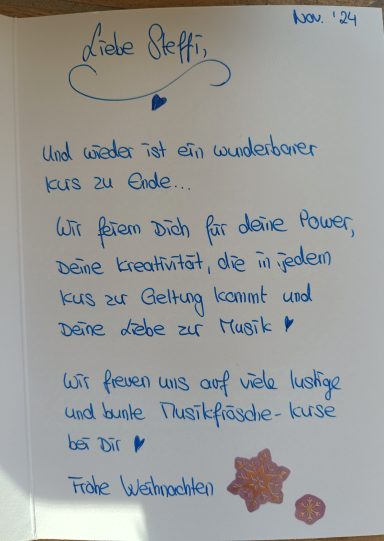 Nov. '24
Liebe Steffi,
Und wieder ist ein wunderbarer
Kurs zu Ende...
Wir feiern Dich für deine Power,
Deine Kreativität, die in jedem
Kurs zur Geltung kommt und
Deine Liebe zur Musik
Wir freuen uns auf viele lustige
und bunte Musikfrösche-Kurse
bei Dir
Frohe Weihnachten